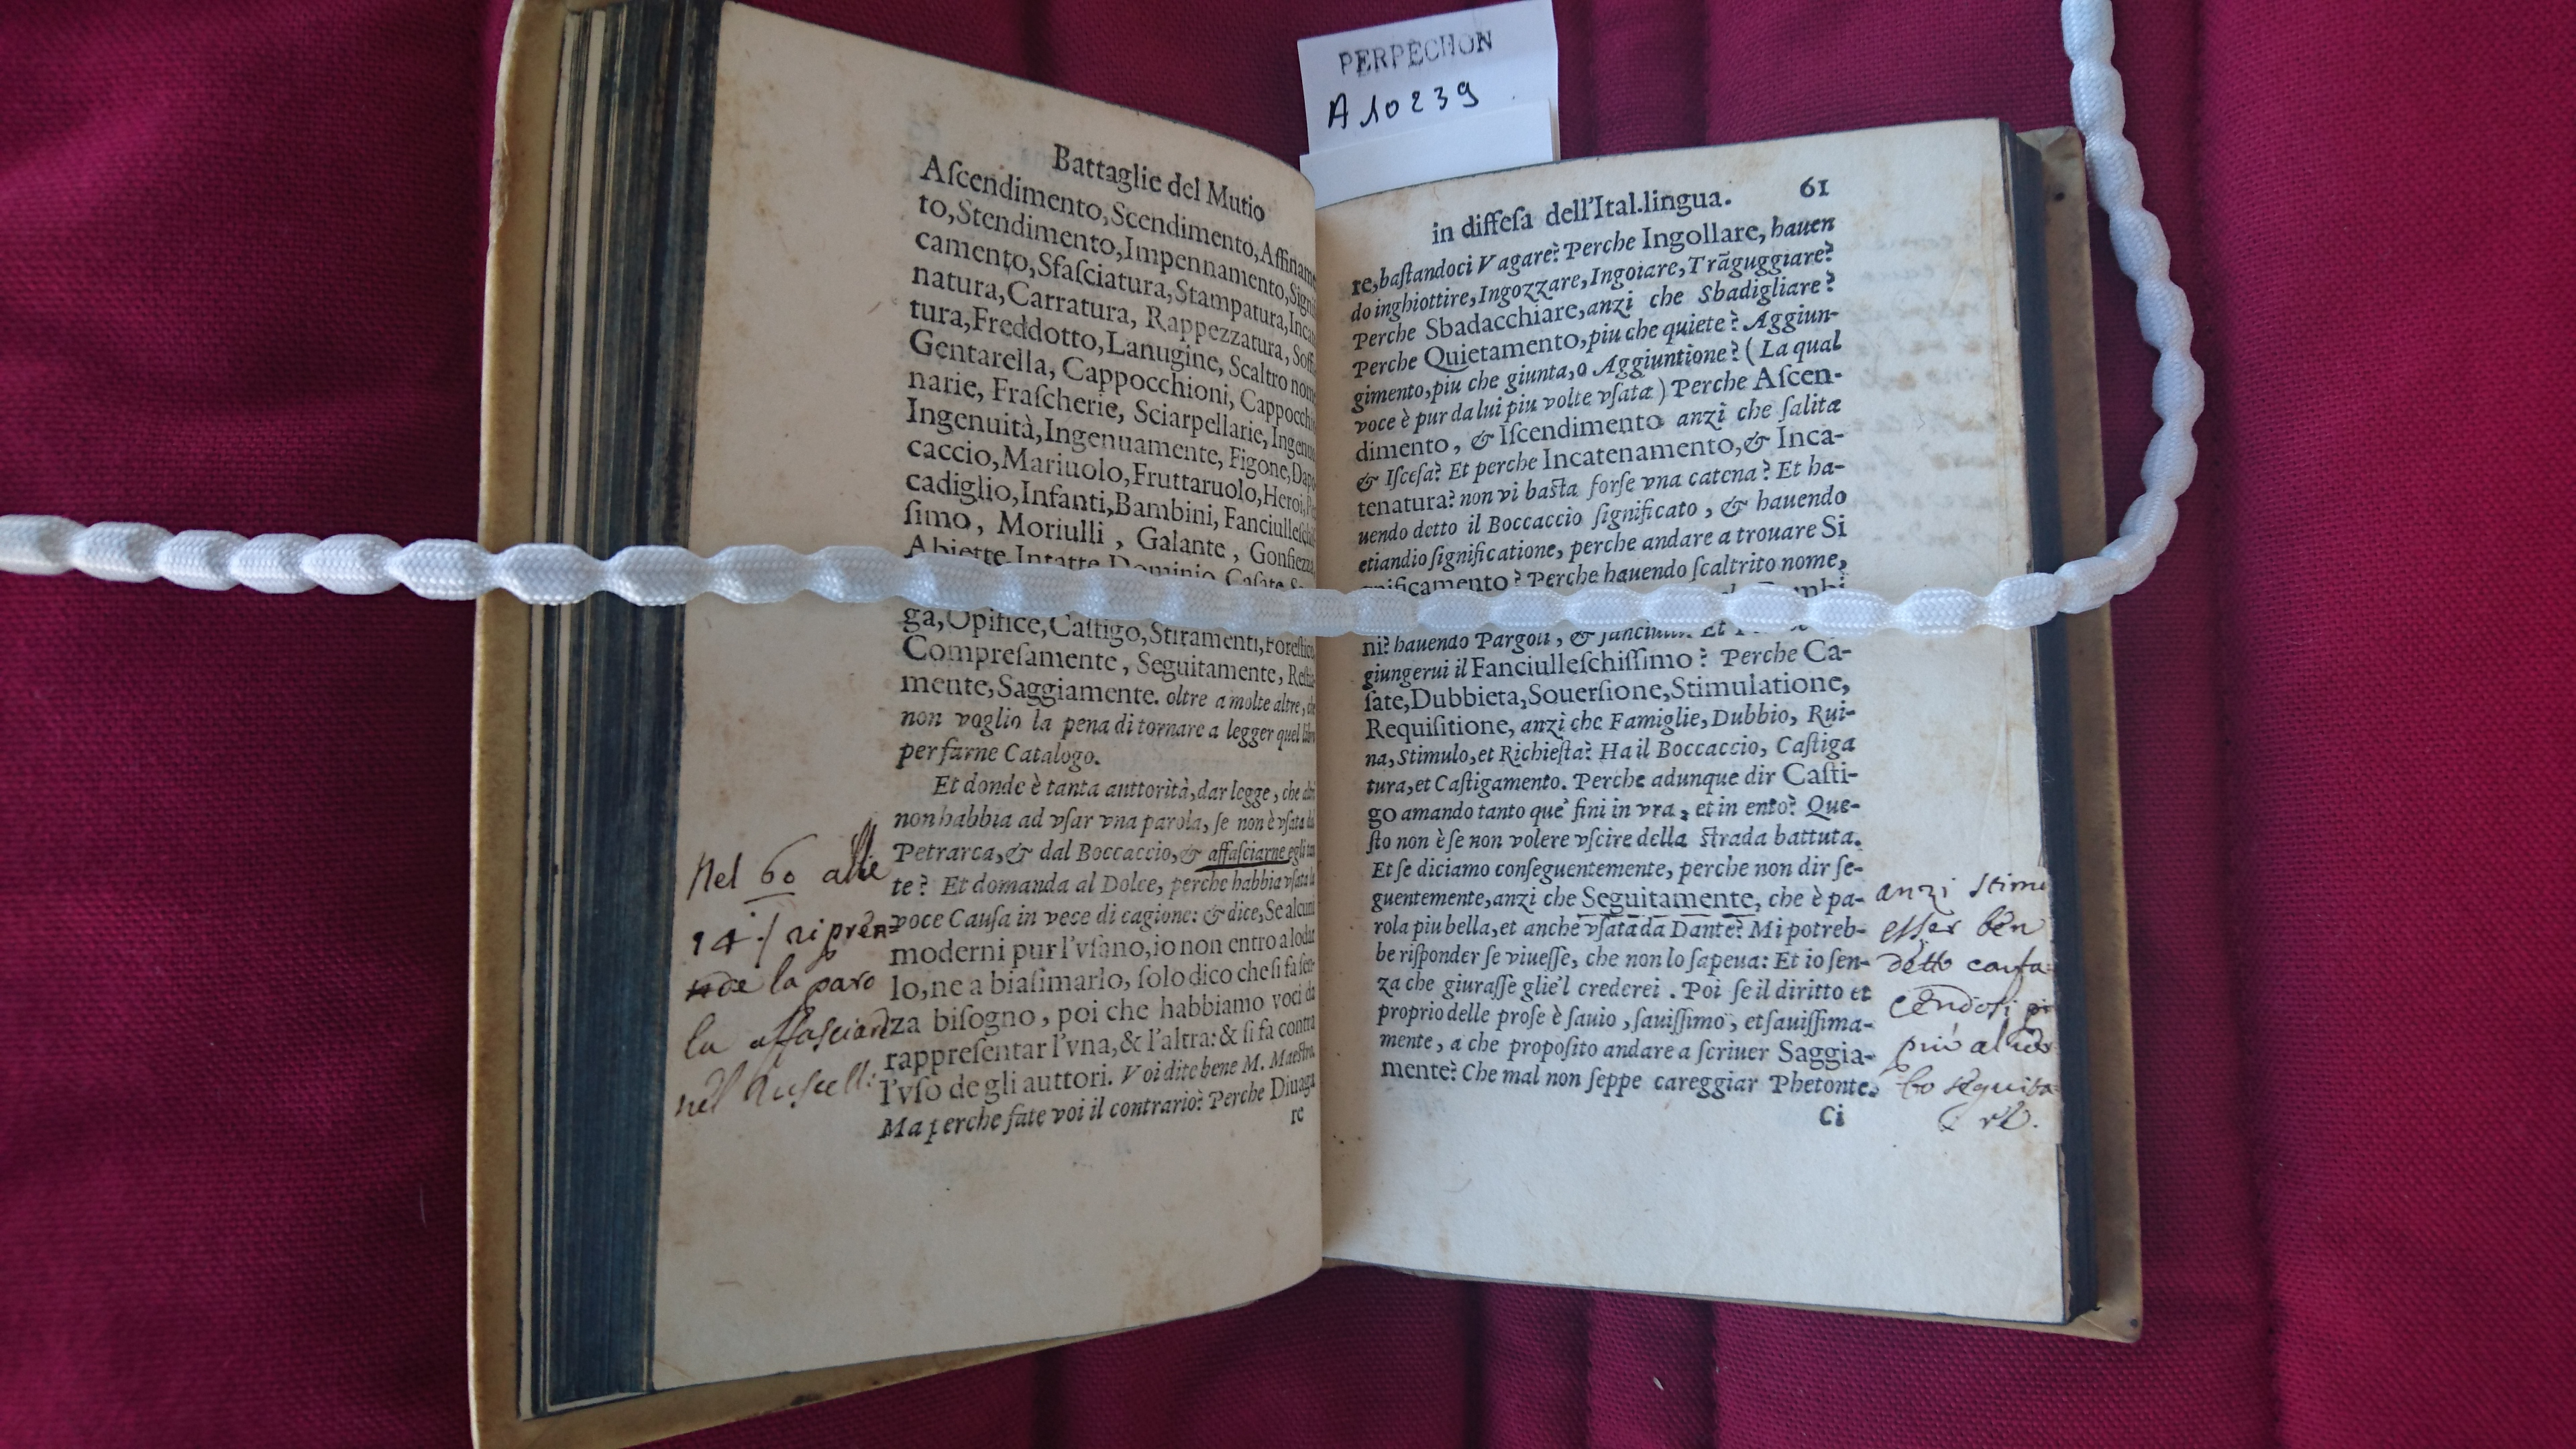 PERPECHON
A10239
Battaglie del Mutio
Aſcendimento,Scendimento,Affiname
to,Stendimento,Impennamento,Signi
camento,Sfaſciatura,Stampatura,Inca
natura,Carratura, Rappezzatura, Soff
tura,Freddotto,Lanugine, Scaltro nome
Gentarella, Cappocchioni, Cappocchi
narie, Fraſcherie, Sciarpellarie, Ingenu
Ingenuità,Ingenuamente, Figone,Dapo
caccio,Mariuolo,Fruttaruolo,Heroi,
cadiglio,Infanti,Bambini, Fanciulleſchiſ
ſimo, Moriulli, Galante, Gonfiezza,
Abiette Intatte Dominio Caſate
ga,Opifice,Caſtigo,Stiramenti,Foreſtico
Compreſamente, Seguitamente, Reſti
mente,Saggiamente. oltre a molte altre, che
non voglio la pena di tornare a legger quel libro
per farne Catalogo.
Et donde è tanta auttorità,dar legge, che altri
non habbia ad vſar vna parola, ſe non è vſata dal
Petrarca,& dal Boccaccio,& affaſciarne egli tan
te? Et domanda al Dolce, perche habbia vſata la
voce Cauſa in vece di cagione: & dice,Se alcuni
moderni pur l'vſano,io non entro a lodar
lo,ne a biaſimarlo, ſolo dico che ſi fa ſen
za biſogno, poi che habbiamo voci da
rappreſentar l'vna,& l'altra: & ſi fa contra
l'vſo de gli auttori. Voi dite bene M. Maeſtro.
Ma perche fate voi il contrario? Perche Diuaga
re
Nel 60 alle
14. / riprēn=
de la paro
la affasciar
nel Ruscelli
in diffeſa dell'Ital.lingua. 61
re,baſtandoci Vagare? Perche Ingollare, hauen
do inghiottire, Ingozzare, Ingoiare, Trāguggiare?
Perche Sbadacchiare,anzi che Sbadigliare?
Perche Quietamento,piu che quiete? Aggiun-
gimento,piu che giunta,o Aggiuntione? ( La qual
voce è pur da lui piu volte vſata ) Perche Aſcen-
dimento, & Iſcendimento anzi che ſalita
& Iſceſa? Et perche Incatenamento,& Inca-
tenatura? non vi baſta forſe vna catena? Et ha-
uendo detto il Boccaccio ſignificato, & hauendo
etiandio ſignificatione, perche andare a trouare Si
gnificamento? Perche hauendo ſcaltrito nome,
ni? hauendo Pargoli, & fanciulli. Et
giungerui il Fanciulleſchiſſimo? Perche Ca-
ſate,Dubbieta,Souerſione,Stimulatione,
Requiſitione, anzi che Famiglie, Dubbio, Rui-
na, Stimulo, et Richieſta? Ha il Boccaccio, Caſtiga
tura, et Caſtigamento. Perche adunque dir Caſti-
go amando tanto que' fini in vra, et in ento? Que-
ſto non è ſe non volere vſcire della ſtrada battuta.
Et ſe diciamo conſeguentemente, perche non dir ſe-
guentemente,anzi che Seguitamente, che è pa-
rola piu bella, et anche vſata da Dante? Mi potreb-
be riſponder ſe viueſſe, che non lo ſapeua: Et io ſen-
za che giuraſſe glie'l crederei. Poi ſe il diritto et
proprio delle proſe è ſauio, ſauiſſimo, et ſauiſſima-
mente, a che propoſito andare a ſcriuer Saggia-
mente? Che mal non ſeppe careggiar Phetonte.
Ci
anzi stimo
esser ben
detto confa
cendosi
più al uer
bo seguita
re.